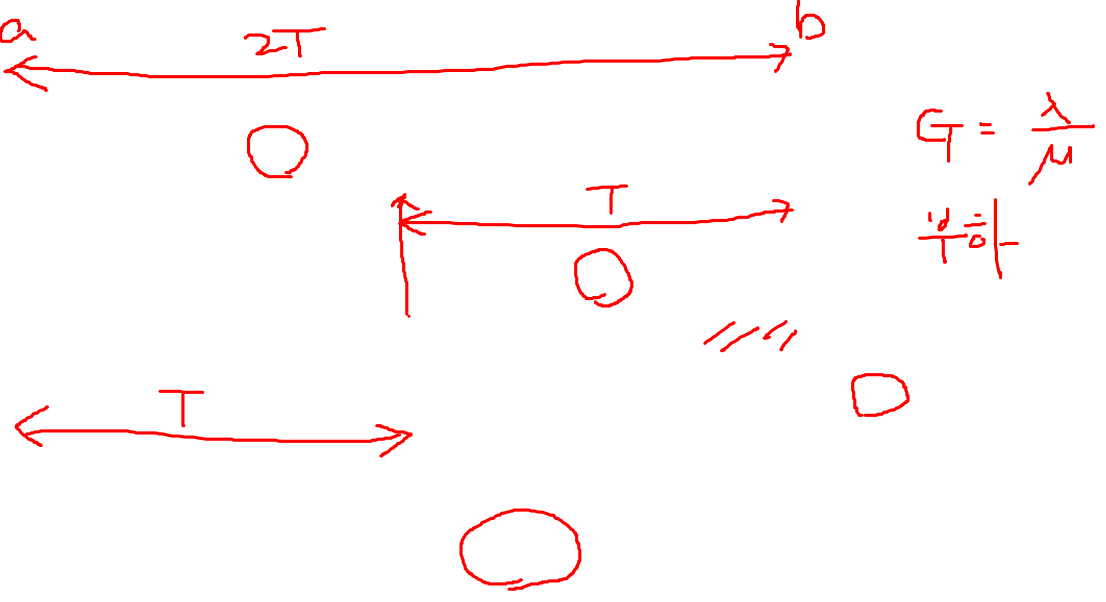 a 2T b
G = λ/μ
T
T